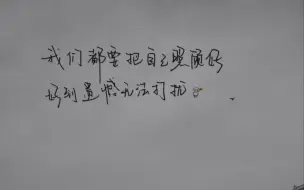 我们都要把自己照顾好
好到遗憾无法打扰